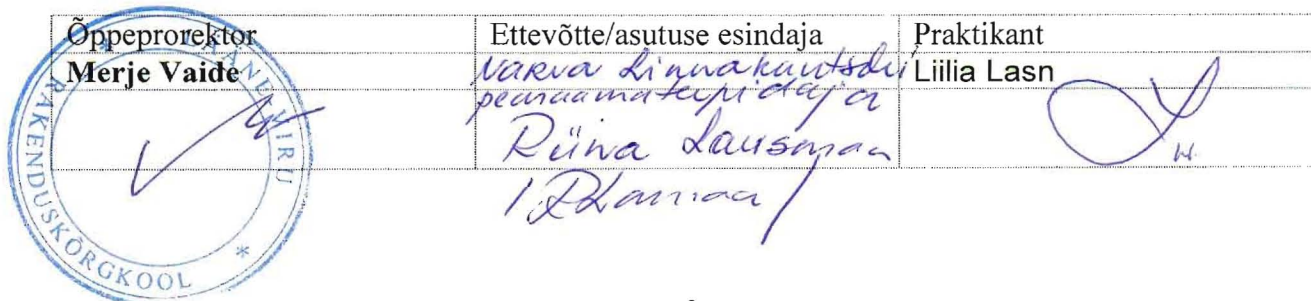 Õppeprorektor
Ettevõtte/asutuse esindaja
Praktikant
Merje Vaide
Narva Linnakantselei
pearaamatupidaja
Riina Lausmaa
Liilia Lasn
LÄÄNE-VIRU RAKENDUSKÕRGKOOL *